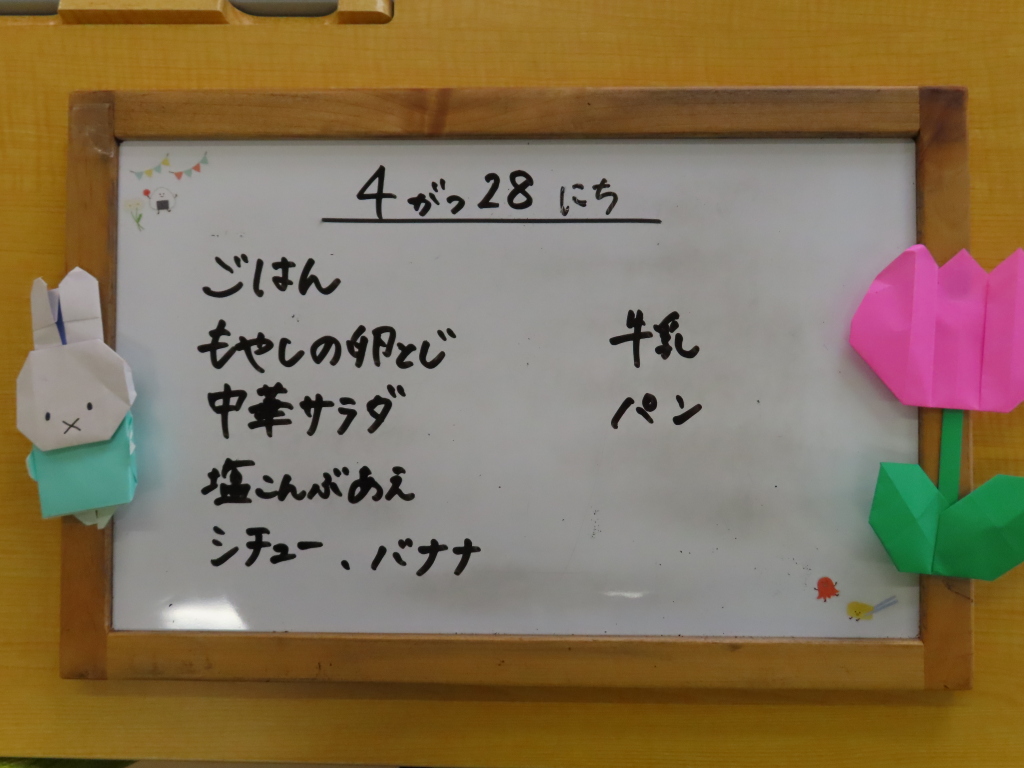 4がつ28にち
ごはん
もやしの卵とじ
中華サラダ
塩こんぶあえ
シチュー、バナナ
牛乳
パン